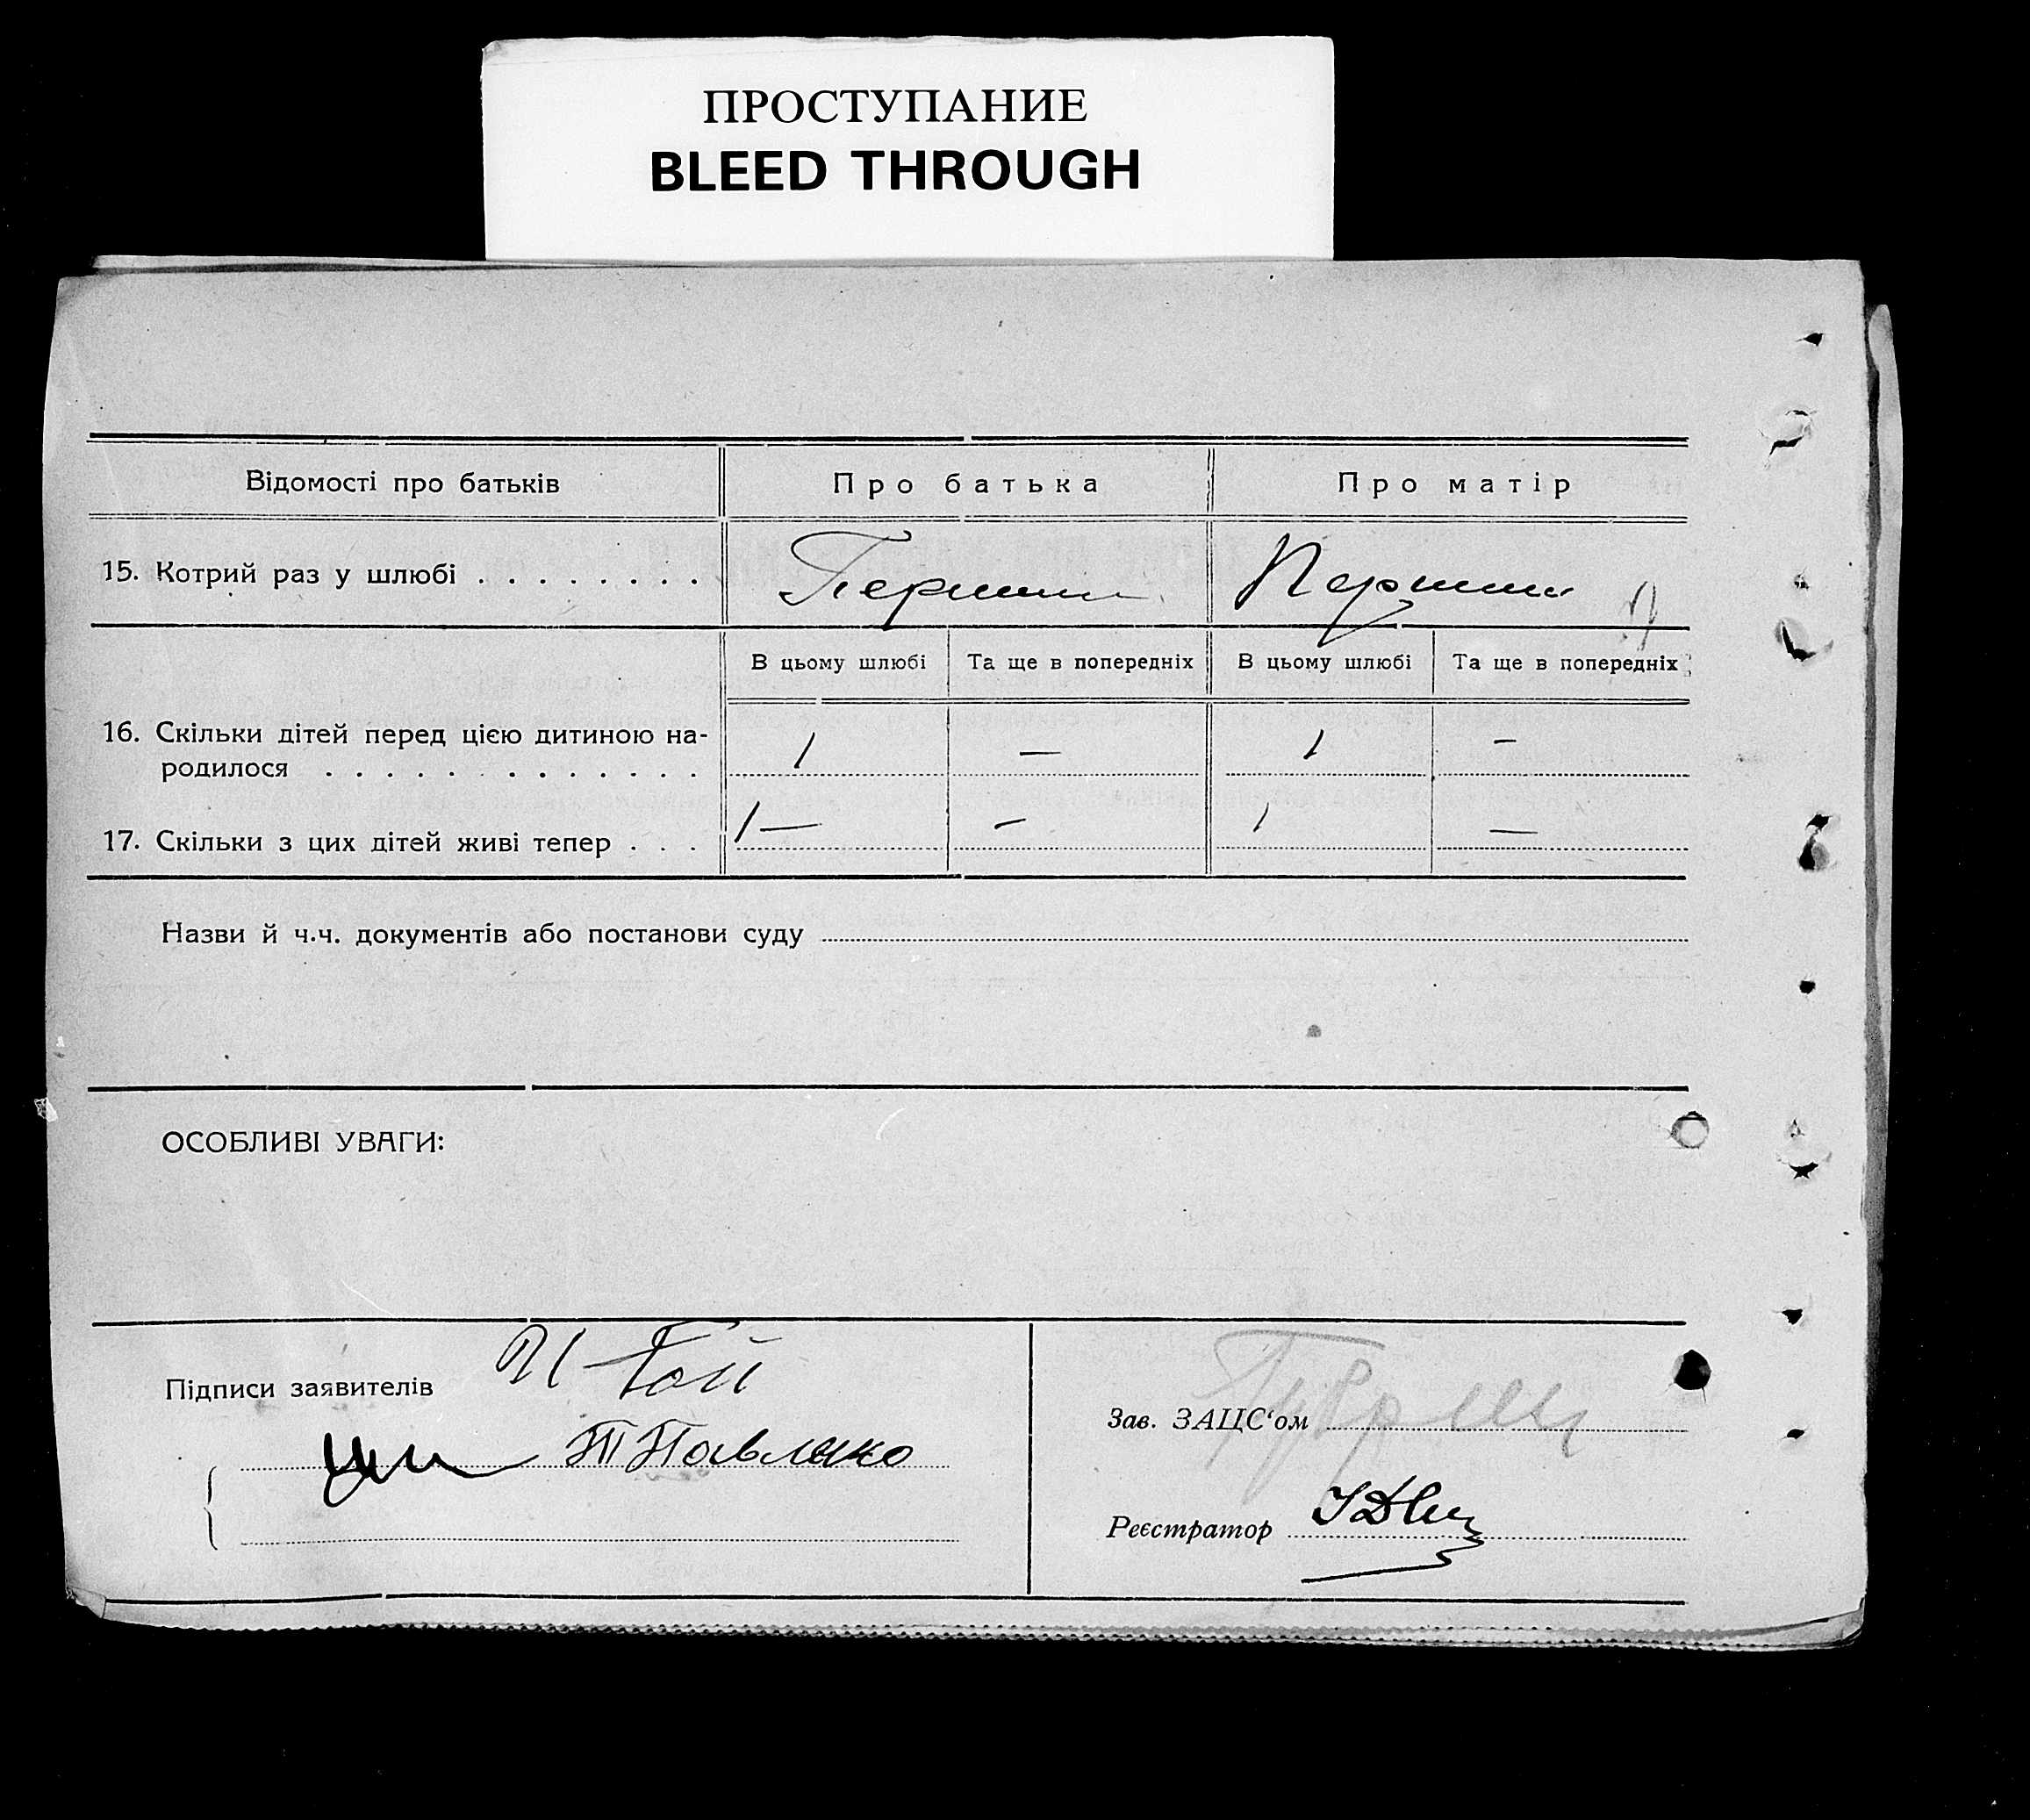 ПРОСТУПАНИЕ
BLEED THROUGH
Відомості про батьків Про батька Про матір
15. Котрий раз у шлюбі . . . . . . . . Перший Перший
В цьому шлюбі Та ще в попередніх В цьому шлюбі Та ще в попередніх
16. Скільки дітей перед цією дитиною на-
родилося . . . . . . . . . . . . . 1 — 1 —
17. Скільки з цих дітей живі тепер . . . 1 — — 1 —
Назви й ч.ч. документів або постанови суду
ОСОБЛИВІ УВАГИ:
Підписи заявителів Гай
Зав. ЗАЦС‘ом
Реєстратор